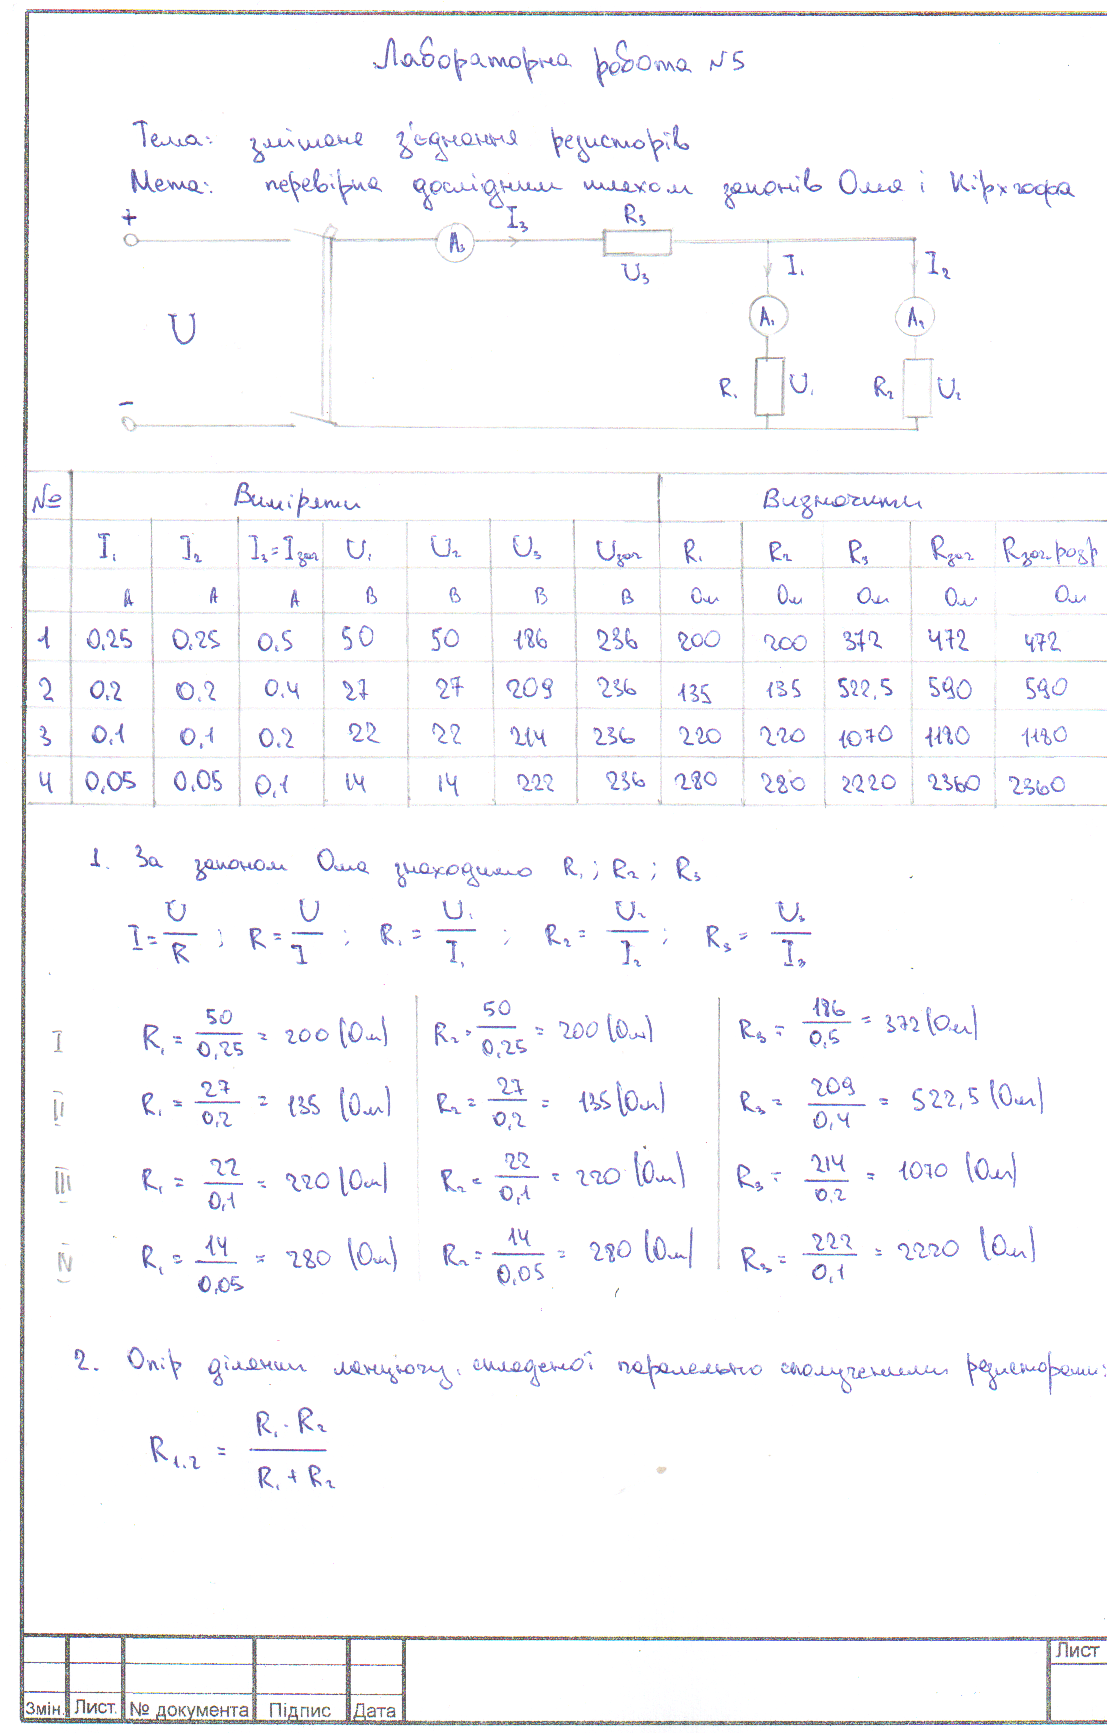 Лабораторна робота №5
Тема: змішане з'єднання резисторів
Мета: перевірка дослідним шляхом законів Ома і Кірхгофа
+ A₃ I₃ R₃ U₃
I₁ I₂
U A₁ A₂
R₁ U₁ R₂ U₂
-
№ Виміряти Визначити
I₁ I₂ I₃=Iзаг U₁ U₂ U₃ Uзаг R₁ R₂ R₃ Rзаг Rзаг.розр
А А А В В В В Ом Ом Ом Ом Ом
1 0,25 0,25 0,5 50 50 186 236 200 200 372 472 472
2 0.2 0.2 0.4 27 27 209 236 135 135 522,5 590 590
3 0.1 0,1 0.2 22 22 214 236 220 220 1070 1180 1180
4 0,05 0,05 0,1 14 14 222 236 280 280 2220 2360 2360
1. За законом Ома знаходимо R₁; R₂; R₃
I=U/R ; R=U/I ; R₁=U₁/I₁ ; R₂=U₂/I₂ ; R₃=U₃/I₃
I R₁=50/0,25=200 (Ом) R₂=50/0,25=200 (Ом) R₃=186/0,5=372 (Ом)
II R₁=27/0,2=135 (Ом) R₂=27/0,2=135 (Ом) R₃=209/0,4=522,5 (Ом)
III R₁=22/0,1=220 (Ом) R₂=22/0,1=220 (Ом) R₃=214/0,2=1070 (Ом)
IV R₁=14/0,05=280 (Ом) R₂=14/0,05=280 (Ом) R₃=222/0,1=2220 (Ом)
2. Опір ділянки ланцюгу, складеної паралельно сполученими резисторами:
R₁.₂ = R₁·R₂/R₁+R₂
Лист
Змін. Лист. № документа Підпис Дата